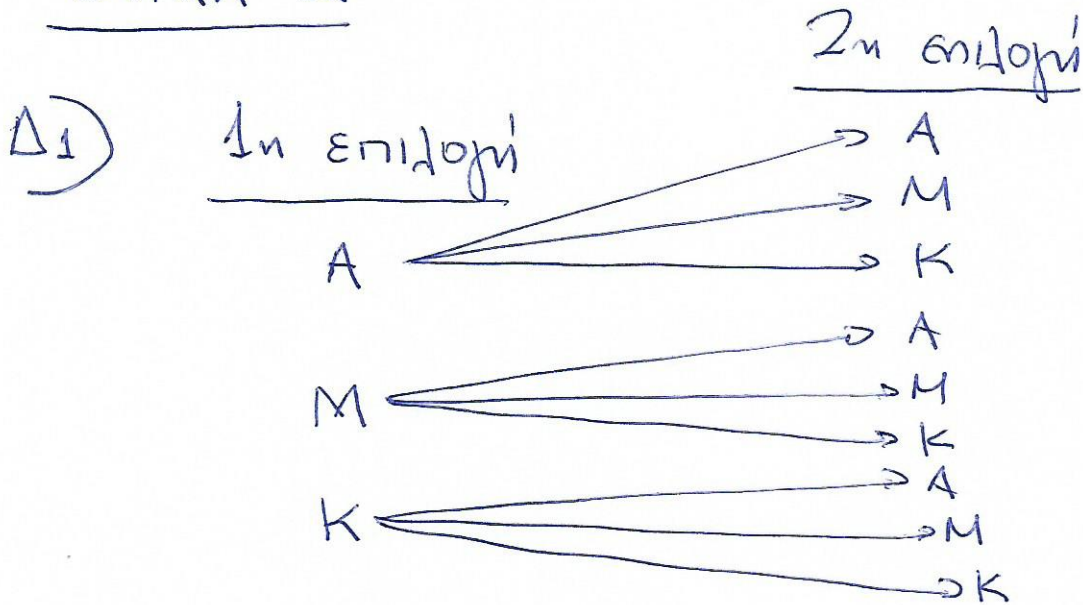 2η επιλογή
Δ1) 1η επιλογή
A
M
K
A
M
K
A
M
K
A
M
K